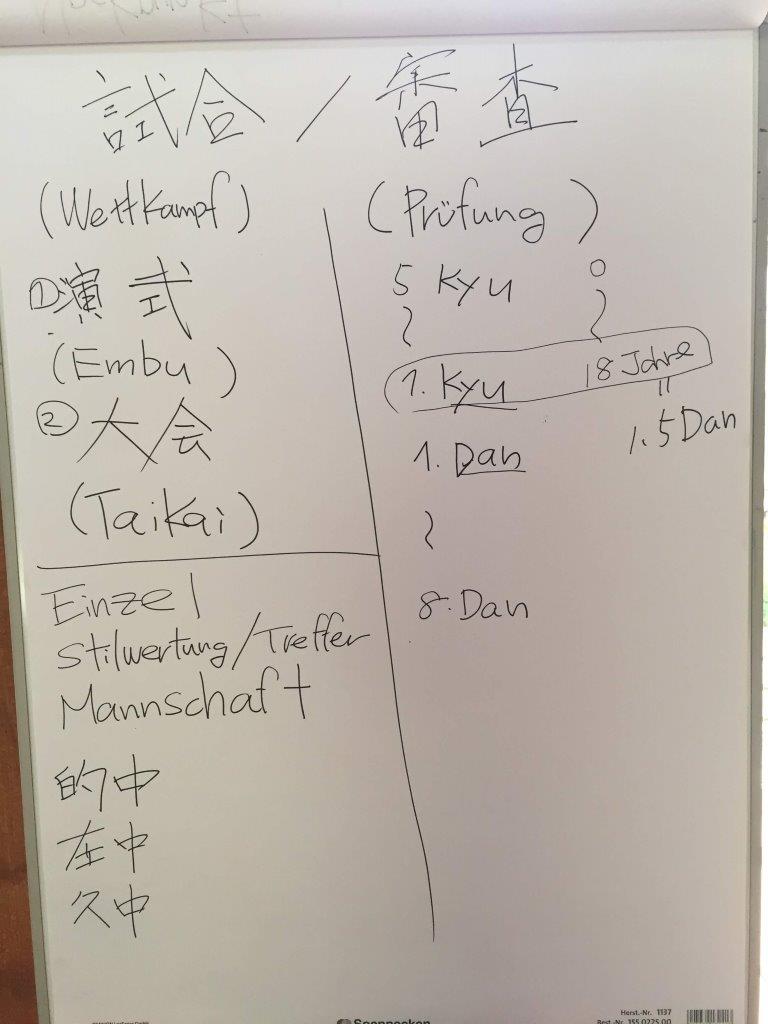 試合 / 審査
(Wettkampf)
(Prüfung)
① 演武
(Embu)
② 大会
(Taikai)
Einzel
Stilwertung/Treffer
Mannschaft
的中
在中
久中
5 Kyu
1. Kyu 18 Jahre
1.5 Dan
1. Dan
8. Dan
Herst.-Nr. 1137
Best.-Nr. 155 0225 00